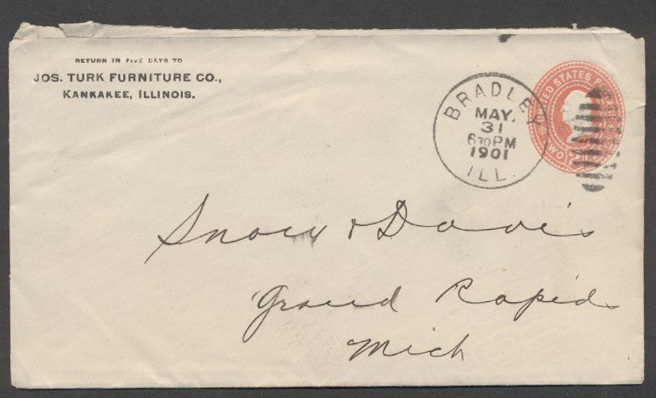 RETURN IN FIVE DAYS TO
JOS. TURK FURNITURE CO.,
KANKAKEE, ILLINOIS.
BRADLEY
MAY.
31
630PM
1901
ILL.
UNITED STATES
TWO
& Davis
Grand Rapids
Mich